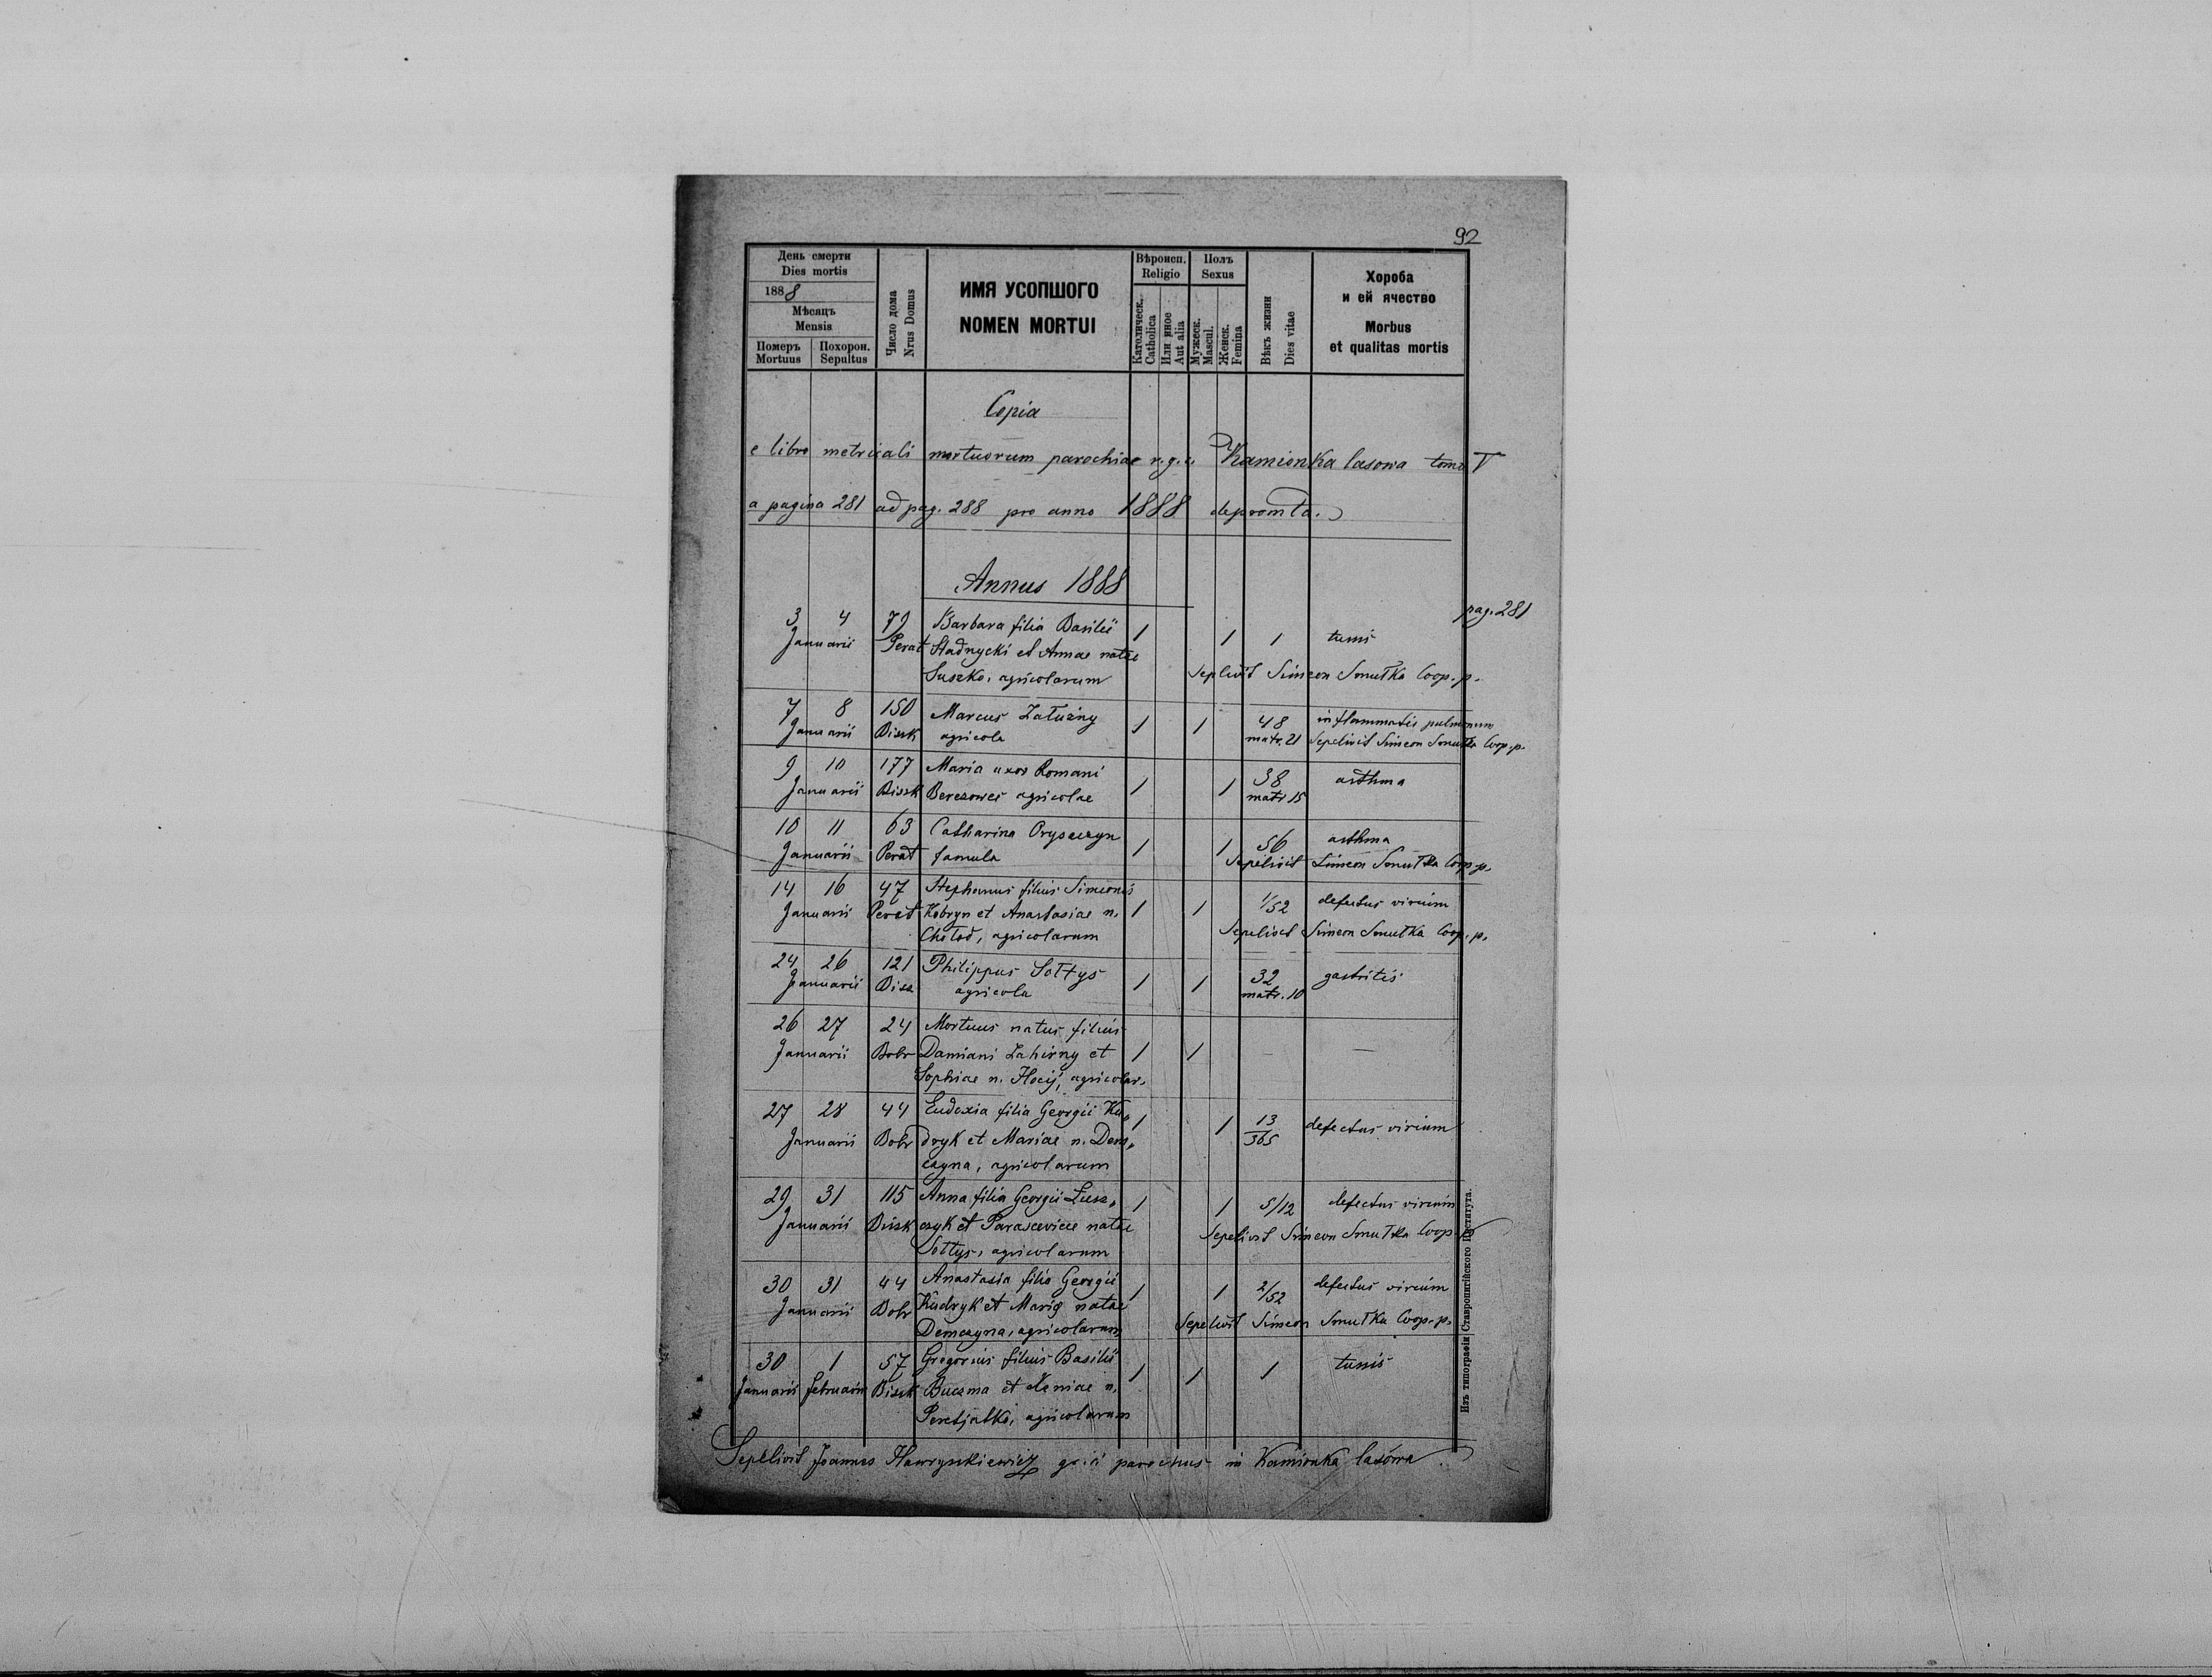 92
День смерти
Dies mortis
1888
Мѣсяцъ
Mensis
Померъ Похорон.
Mortuus Sepultus
Число дома
Nrus Domus
ИМЯ УСОПШОГО
NOMEN MORTUI
Вѣроисп.
Religio
Католическ.
Catholica
Или иное
Aut alia
Полъ
Sexus
Мужеск.
Mascul.
Женск.
Femina
Вѣкъ жизни
Dies vitae
Хороба
и ей ячество
Morbus
et qualitas mortis
Copia
e libro metricali mortuorum parochiae r.g.c. Kamionka lasowa tomo T
a pagina 281 ad pag. 288 pro anno 1888 depromta.
Annus 1888
pag. 281
3 4 79 Barbara filia Basilii 1 1 1 tussis
Januarii Perat Stadnycki et Annae natae
Suszko, agricolarum Seplivit Simeon Smutka Coop. p.
7 8 150 Marcus Załużny 1 1 48 inflammatio pulmonum
Januarii Bissk agricola matr. 21 Sepelivit Simeon Smutka Coop. p.
9 10 177 Maria uxor Romani 1 1 38 asthma
Januarii Bissk Berezowei agricolae matr 15
10 11 63 Catharina Oryszczyn 1 1 56 asthma
Januarii Perat famula Sepelivit Simeon Smutka Coop. p.
14 16 47 Stephanus filius Simeonis 1 1 1/52 defectus virium
Januarii Perat Kobryn et Anastasiae n.
Chołod, agricolarum Sepelivit Simeon Smutka Coop. p.
24 26 121 Philippus Sołtys 1 1 32 gastritis
Januarii Bisz agricola matr. 10
26 27 24 Mortuus natus filius
Januarii Bobr Damiani Zahirny et 1 1 — —
Sophiae n. Hocij, agricolar.
27 28 44 Eudoxia filia Georgii Ku„ 1 1 13/365 defectus virium
Januarii Bobr dryk et Mariae n. Dem„
czyna, agricolarum
29 31 115 Anna filia Georgii Łusz„ 1 1 5/12 defectus virium
Januarii Bissk czyk et Parasceviae natae Sepelivit Simeon Smutka Coop p
Sołtys, agricolarum
30 31 44 Anastasia filia Georgii 1 1 2/52 defectus virium
Januarii Bobr Kudryk et Mariae natae Sepelivit Simeon Smutka Coop. p.
Demczyna, agricolarum
30 1 57 Gregorius filius Basilii 1 1 1 tussis
Januarii Februarii Bissk Buczma et Xeniae n.
Peretjatko, agricolarum
Sepelivit Joannes Hawryszkiewicz gr. c. parochus in Kamionka lasowa
Изъ типографіи Ставропигійского Института.